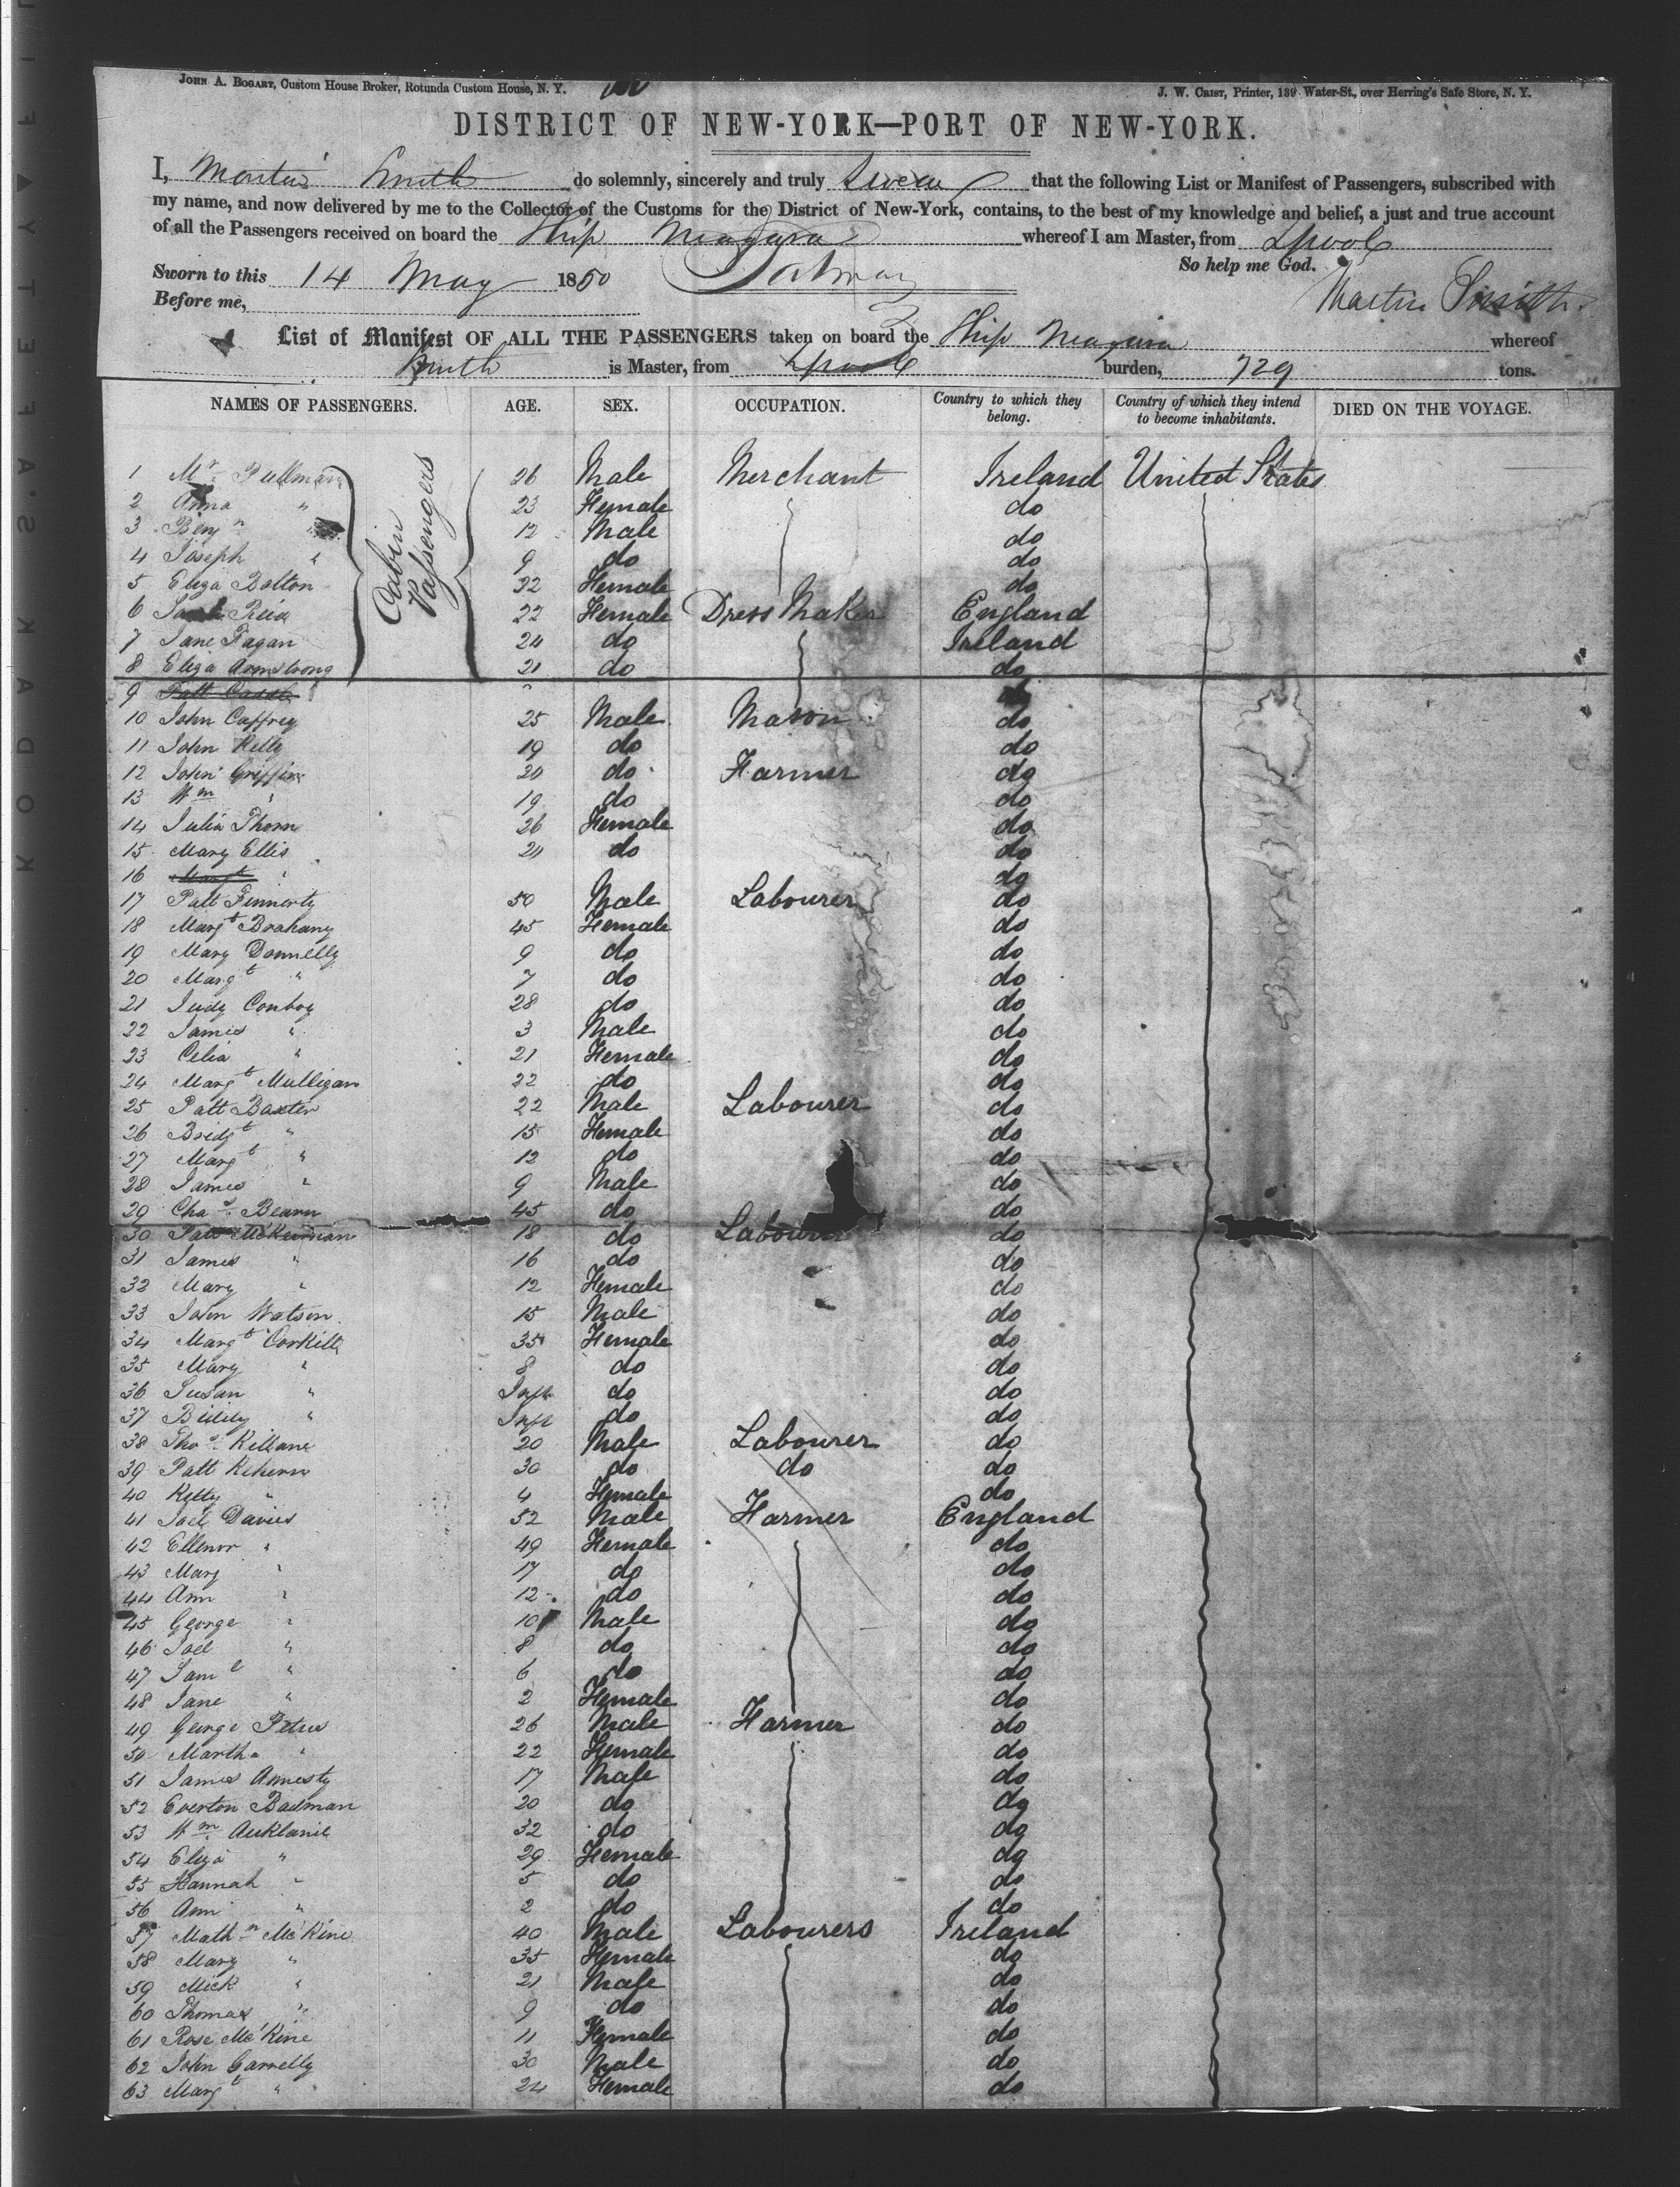 JOHN A. BOGART, Custom House Broker, Rotunda Custom House, N. Y.
J. W. CRIST, Printer, 139 Water-St., over Herring's Safe Store, N. Y.
DISTRICT OF NEW-YORK—PORT OF NEW-YORK.
I, Martin Smith do solemnly, sincerely and truly swear that the following List or Manifest of Passengers, subscribed with
my name, and now delivered by me to the Collector of the Customs for the District of New-York, contains, to the best of my knowledge and belief, a just and true account
of all the Passengers received on board the Ship Niagara whereof I am Master, from Lpool
So help me God.
Sworn to this 14 May 1850
Martin Smith
Before me,
List of Manifest OF ALL THE PASSENGERS taken on board the Ship Niagara whereof
Smith is Master, from Lpool burden, 729 tons.
NAMES OF PASSENGERS. AGE. SEX. OCCUPATION. Country to which they belong. Country of which they intend to become inhabitants. DIED ON THE VOYAGE.
Cabin Passengers
1 Mr Pullman 26 Male Merchant Ireland United States
2 Anna " 23 Female do
3 Benjn " 12 Male do
4 Joseph " 9 do do
5 Eliza Bolton 22 Female do
6 Reid 22 Female Dress Maker England
7 Jane Fagan 24 do Ireland
8 Eliza Armstrong 21 do do
9 Patt
10 John Caffrey 25 Male Mason do
11 John Kelly 19 do do
12 John Griffin 20 do Farmer do
13 Wm " 19 do do
14 Julia Thorn 26 Female do
15 Mary Ellis 20 do do
16 Margt " do
17 Patt Finnerty 50 Male Labourer do
18 Margt Brahany 45 Female do
19 Mary Donnelly 9 do do
20 Margt " 7 do do
21 Judy Conboy 28 do do
22 James " 3 Male do
23 Celia " 21 Female do
24 Margt Mulligan 22 do do
25 Patt Baxter 22 Male Labourer do
26 Bridgt " 15 Female do
27 Margt " 12 do do
28 James " 9 Male do
29 Chas Bearn 45 do do
30 Patt McKernan 18 do Labourer do
31 James " 16 do do
32 Mary " 12 Female do
33 John Watson 15 Male do
34 Margt Corkill 35 Female do
35 Mary " 8 do do
36 Susan " Inft do do
37 Biddy " Inft do do
38 Thos Killane 20 Male Labourer do
39 Patt Kehern 30 do do do
40 Kitty " 4 Female do
41 Joel Davies 52 Male Farmer England
42 Ellenor " 49 Female do
43 Mary " 17 do do
44 Ann " 12 do do
45 George " 10 Male do
46 Joel " 8 do do
47 Saml " 6 do do
48 Jane " 2 Female do
49 George Petrie 26 Male Farmer do
50 Martha " 22 Female do
51 James Amesty 17 Male do
52 Everton Badman 20 do do
53 Wm Aukland 32 do do
54 Eliza " 29 Female do
55 Hannah " 5 do do
56 Ann " 2 do do
57 Mathw McKine 40 Male Labourers Ireland
58 Mary " 35 Female do
59 Mick " 21 Male do
60 Thomas " 9 do do
61 Rose McKine 11 Female do
62 John Garrelly 30 Male do
63 Margt " 24 Female do
KODAK SAFETY